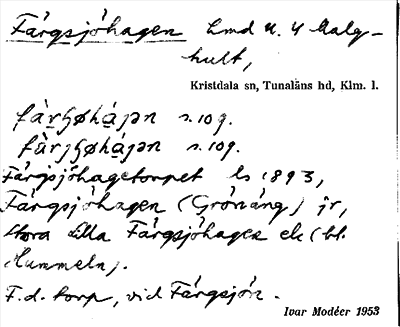 Färgsjöhagen Lmd u. Y Malg-
hult,
Kristdala sn, Tunaläns hd, Klm. l.
fàr̠ʃøhá̠ɟən s. 109.
fǜrjʃøhá̠jən s. 109.
Färgsjöhagetorpet ls 1893,
Färgsjöhagen (Grönäng) jr,
Stora Lilla Färgsjöhagen ek (bl.
Hummeln).
F.d. torp, vid Färgsjön.
Ivar Modéer 1953